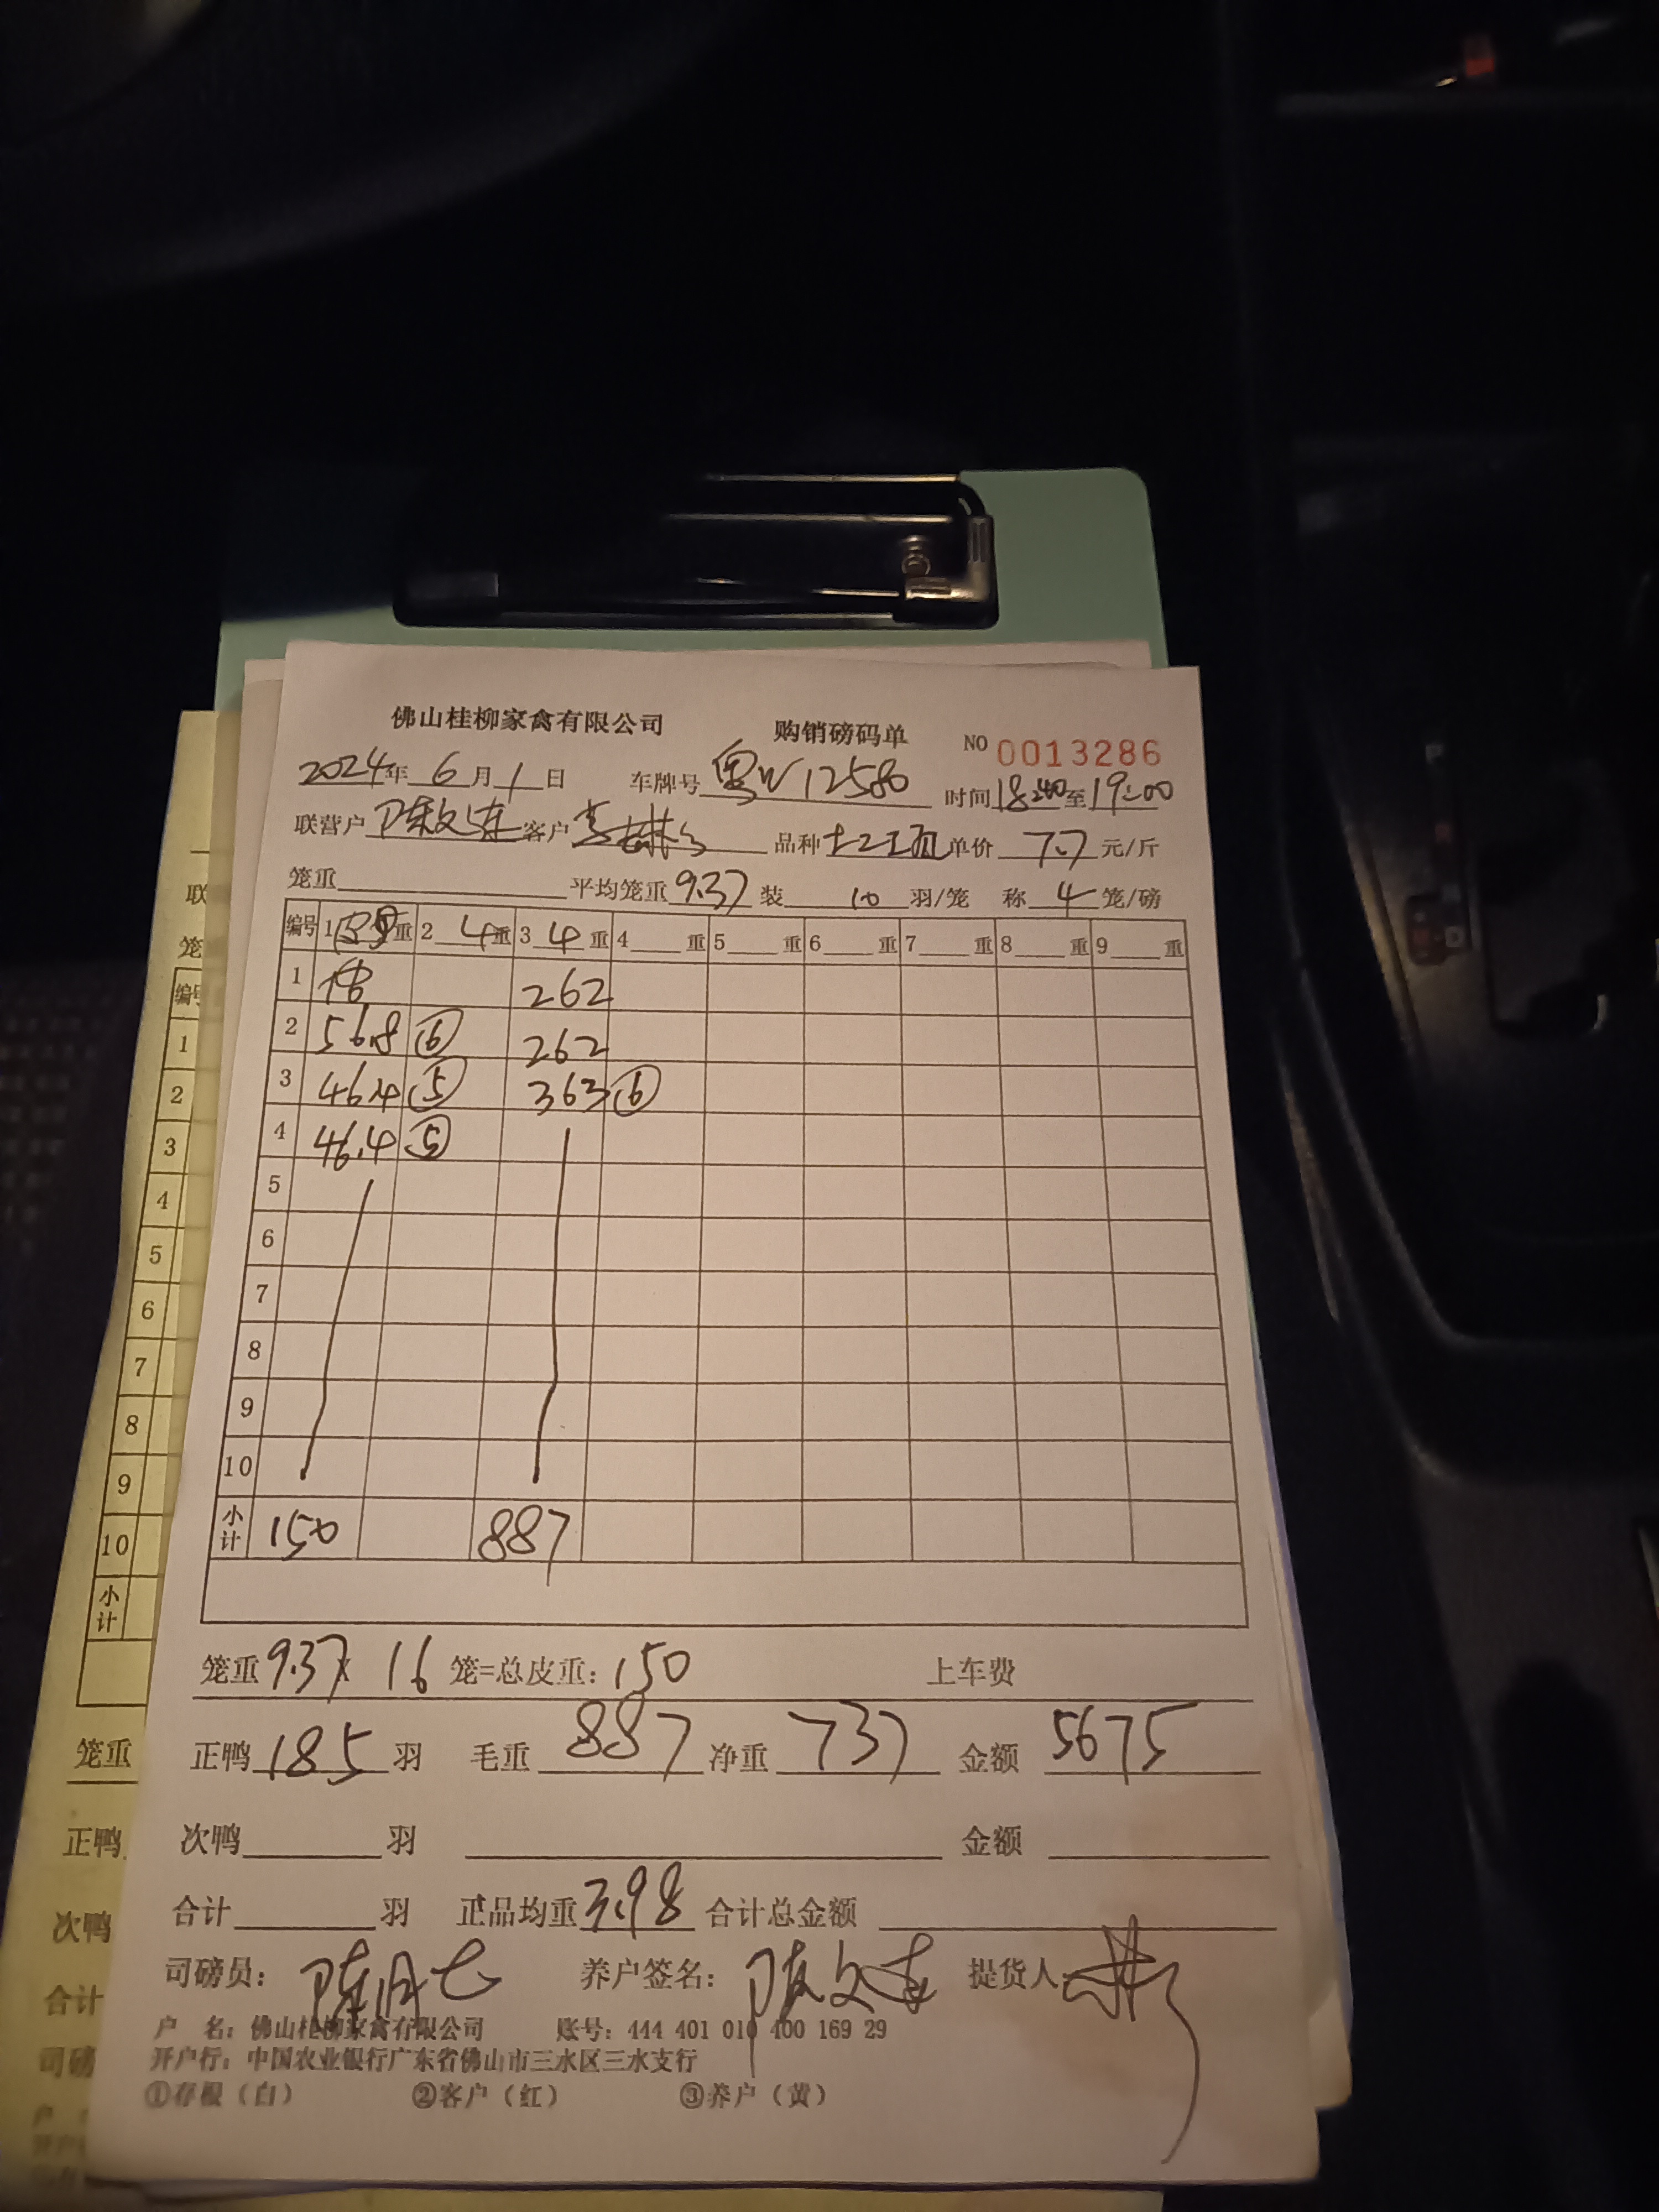 佛山桂柳家禽有限公司 购销磅码单 NO 0013286
2024年 6 月 1 日 车牌号 粤W12580 时间 18:40 至 19:00
联营户 陈文连 客户 品种 单价 7.7 元/斤
笼重 平均笼重 9.37 装 10 羽/笼 称 4 笼/磅
编号 1 重 2 4 重 3 4 重 4 重 5 重 6 重 7 重 8 重 9 重
1 262
2 56.8 ⑥ 262
3 46.4 ⑤ 363 ⑥
4 46.4 ⑤
5
6
7
8
9
10
小计 150 887
笼重 9.37 × 16 笼=总皮重: 150 上车费
正鸭 185 羽 毛重 887 净重 737 金额 5675
次鸭 羽 金额
合计 羽 正品均重 3.98 合计总金额
司磅员: 养户签名: 陈文连 提货人:
户 名: 佛山桂柳家禽有限公司 账号: 444 401 010 400 169 29
开户行: 中国农业银行广东省佛山市三水区三水支行
①存根（白） ②客户（红） ③养户（黄）
联
笼
编号
1
2
3
4
5
6
7
8
9
10
小计
笼重
正鸭
次鸭
合计
司磅